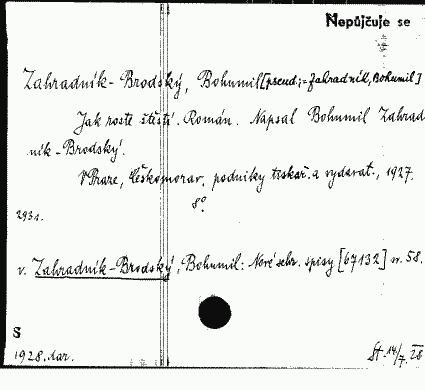 Nepůjčuje se
Zahradník-Brodský, Bohumil [pseud.;=Zahradník, Bohumil]
Jak roste štěstí. Román. Napsal Bohumil Zahrad
ník-Brodský.
V Praze, Českomorav. podniky tiskař. a vydavat., 1927.
8°
293 s.
v. Zahradník-Brodský, Bohumil: Nové sebr. spisy [67132] sv. 58.
S
1928. dar.
St. 14/7. 28